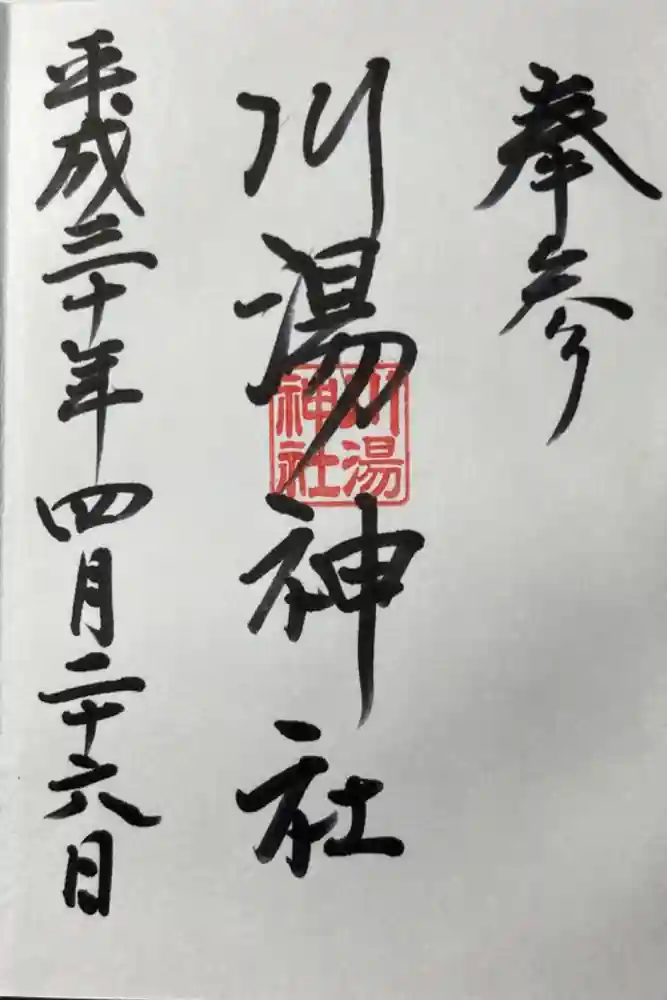 奉参
川湯神社
川湯
神社
平成三十年四月二十六日